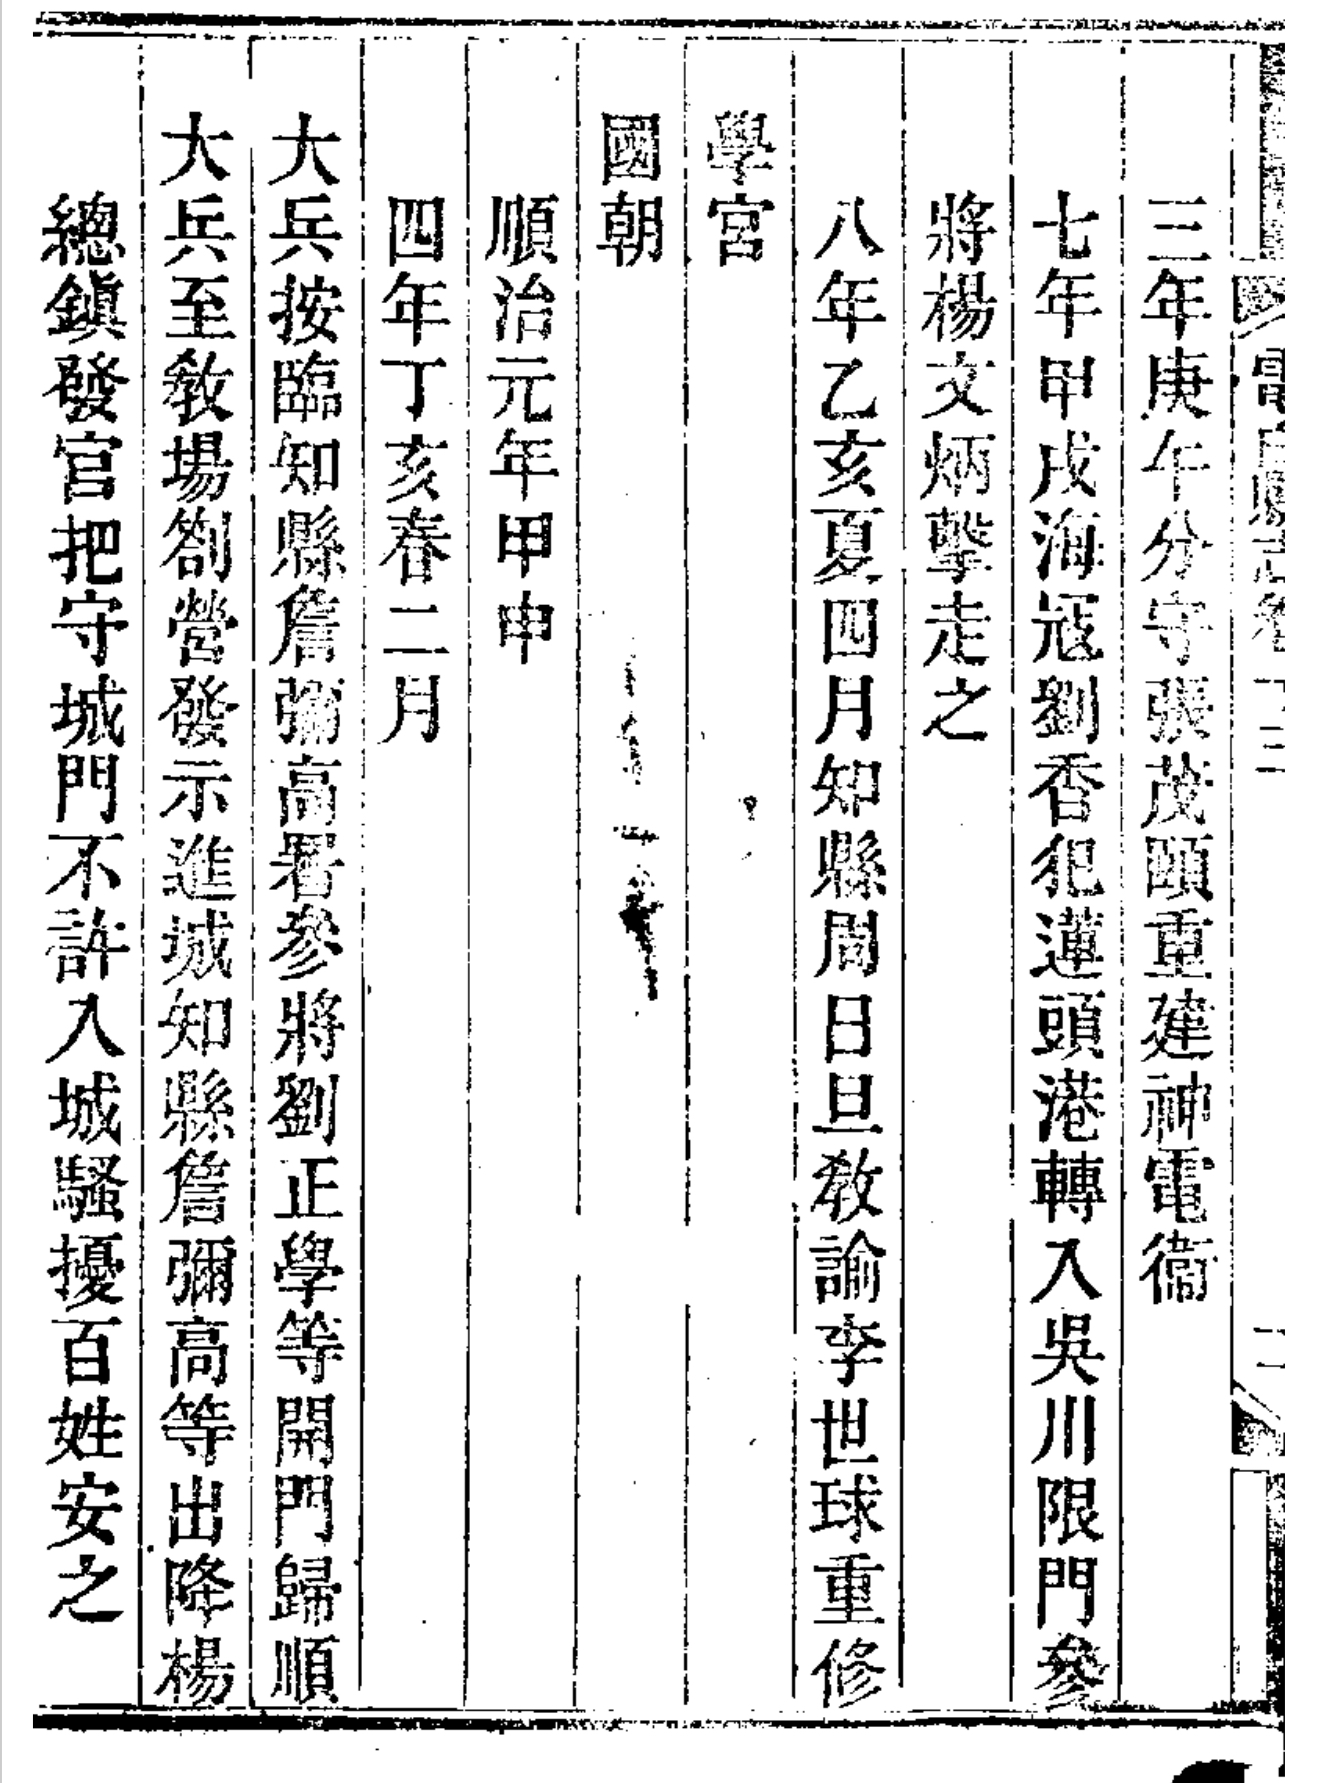 三年庚午分守張茂頤重建神電衞
七年甲戌海寇劉香犯蓮頭港轉入吳川限門參
將楊文炳擊走之
八年乙亥夏四月知縣周日旦教諭李世球重修
學宮
國朝
順治元年甲申
四年丁亥春二月
大兵按臨知縣詹彌高署參將劉正學等開門歸順
大兵至教場劄營發示進城知縣詹彌高等出降楊
總鎭發官把守城門不許入城騷擾百姓安之